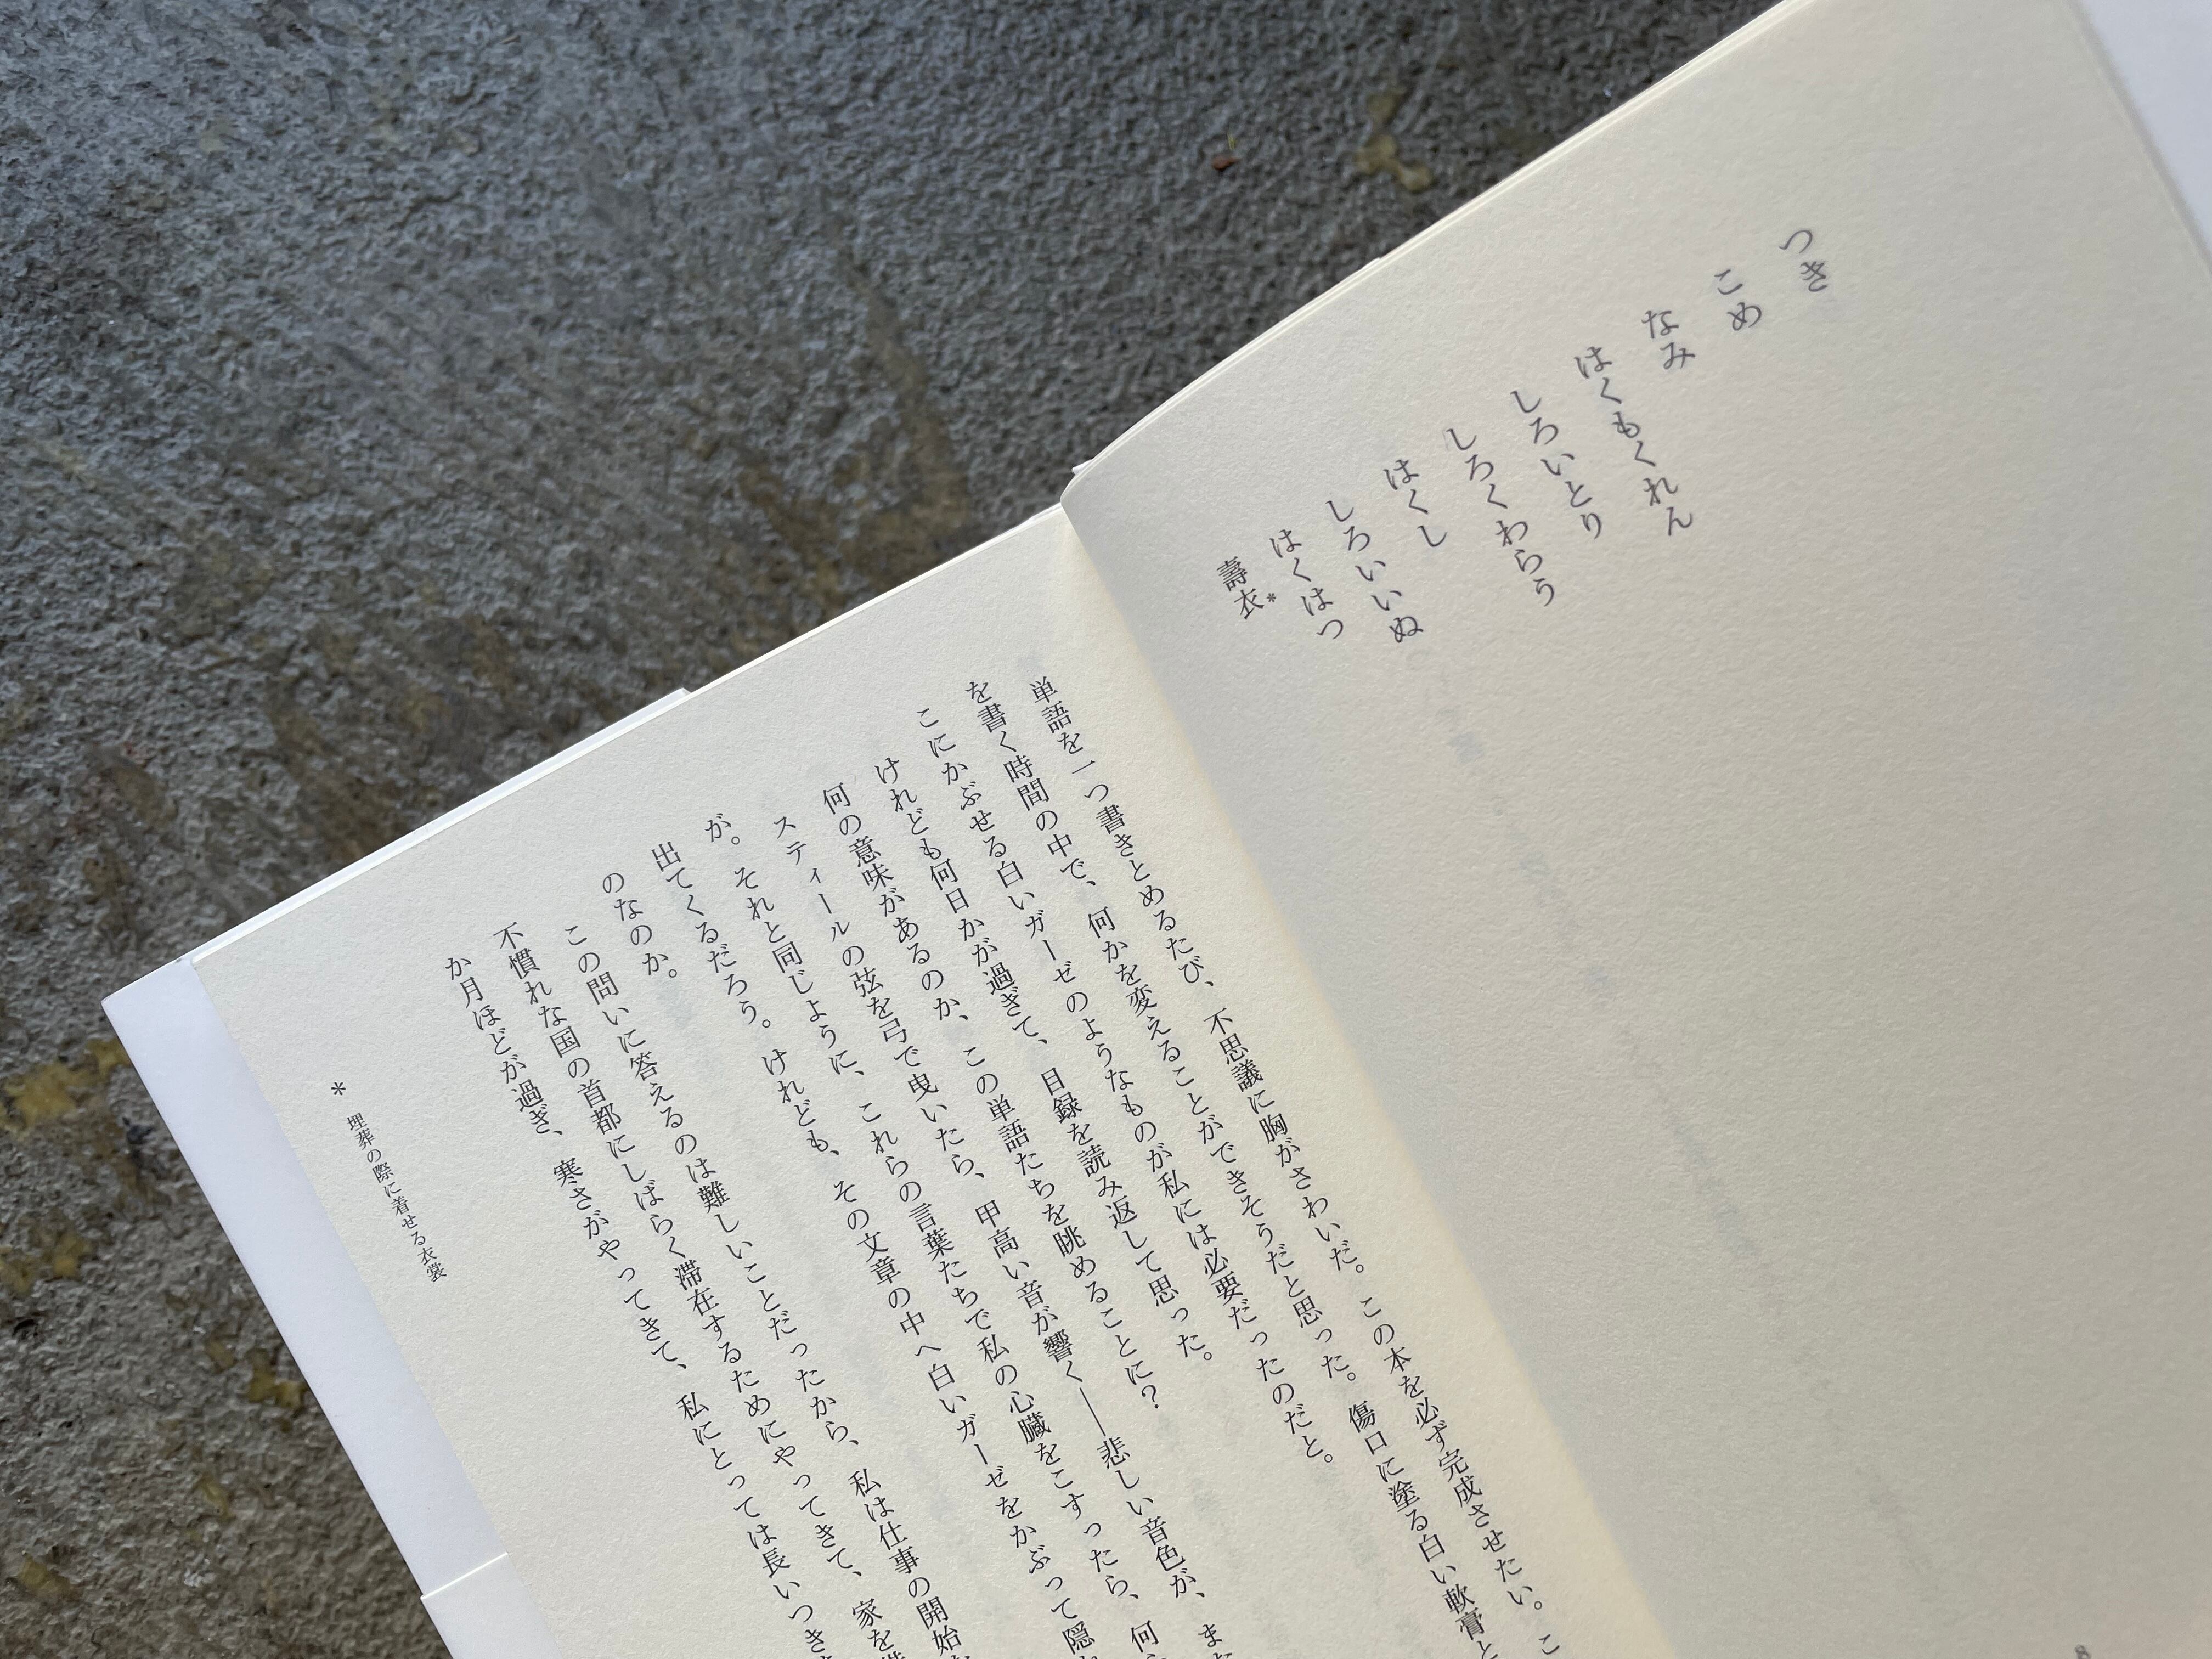 つき
こめ
なみ
はくもくれん
しろいとり
しろくわらう
はくし
しろいいぬ
はくはつ
壽衣*
8
単語を一つ書きとめるたび、不思議に胸がさわいだ。この本を必ず完成させたい。こ
を書く時間の中で、何かを変えることができそうだと思った。傷口に塗る白い軟膏と
こにかぶせる白いガーゼのようなものが私には必要だったのだと。
けれども何日かが過ぎて、目録を読み返して思った。
何の意味があるのか、この単語たちを眺めることに?
スティールの弦を弓で曳いたら、甲高い音が響く――悲しい音色が、また
が。それと同じように、これらの言葉たちで私の心臓をこすったら、何
出てくるだろう。けれども、その文章の中へ白いガーゼをかぶって隠
のなのか。
この問いに答えるのは難しいことだったから、私は仕事の開始
不慣れな国の首都にしばらく滞在するためにやってきて、家を
か月ほどが過ぎ、寒さがやってきて、私にとっては長いつき
* 埋葬の際に着せる衣裳